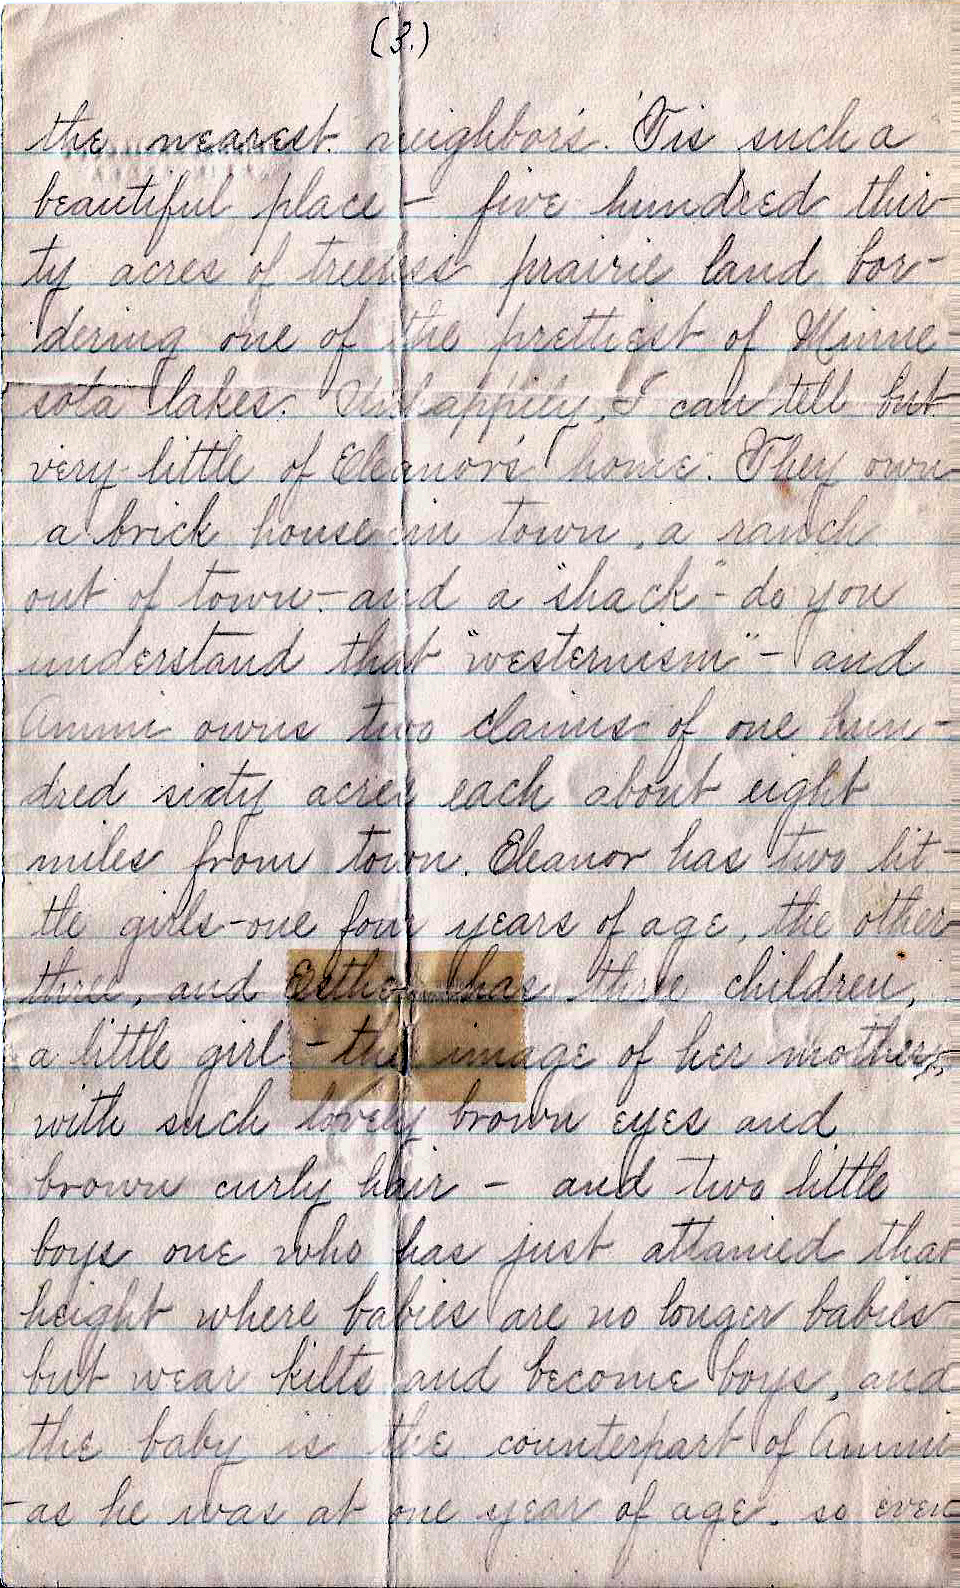 (3.)
the nearest neighbors. 'Tis such a
beautiful place - five hundred thir-
ty acres of treeless prairie land bor-
dering one of the prettiest of Minne-
sota lakes. Unhappily, I can tell but
very little of Eleanor's home. They own
a brick house in town, a ranch
out of town - and a "shack" - do you
understand that "westernism" - and
Ammi owns two claims of one hun-
dred sixty acres each about eight
miles from town. Eleanor has two lit-
tle girls - one four years of age, the other
three, and has three children,
a little girl - the image of her mother,
with such lovely brown eyes and
brown curly hair - and two little
boys one who has just attained that
height where babies are no longer babies
but wear kilts and become boys, and
the baby is the counterpart of Ammi
- as he was at one year of age. so even